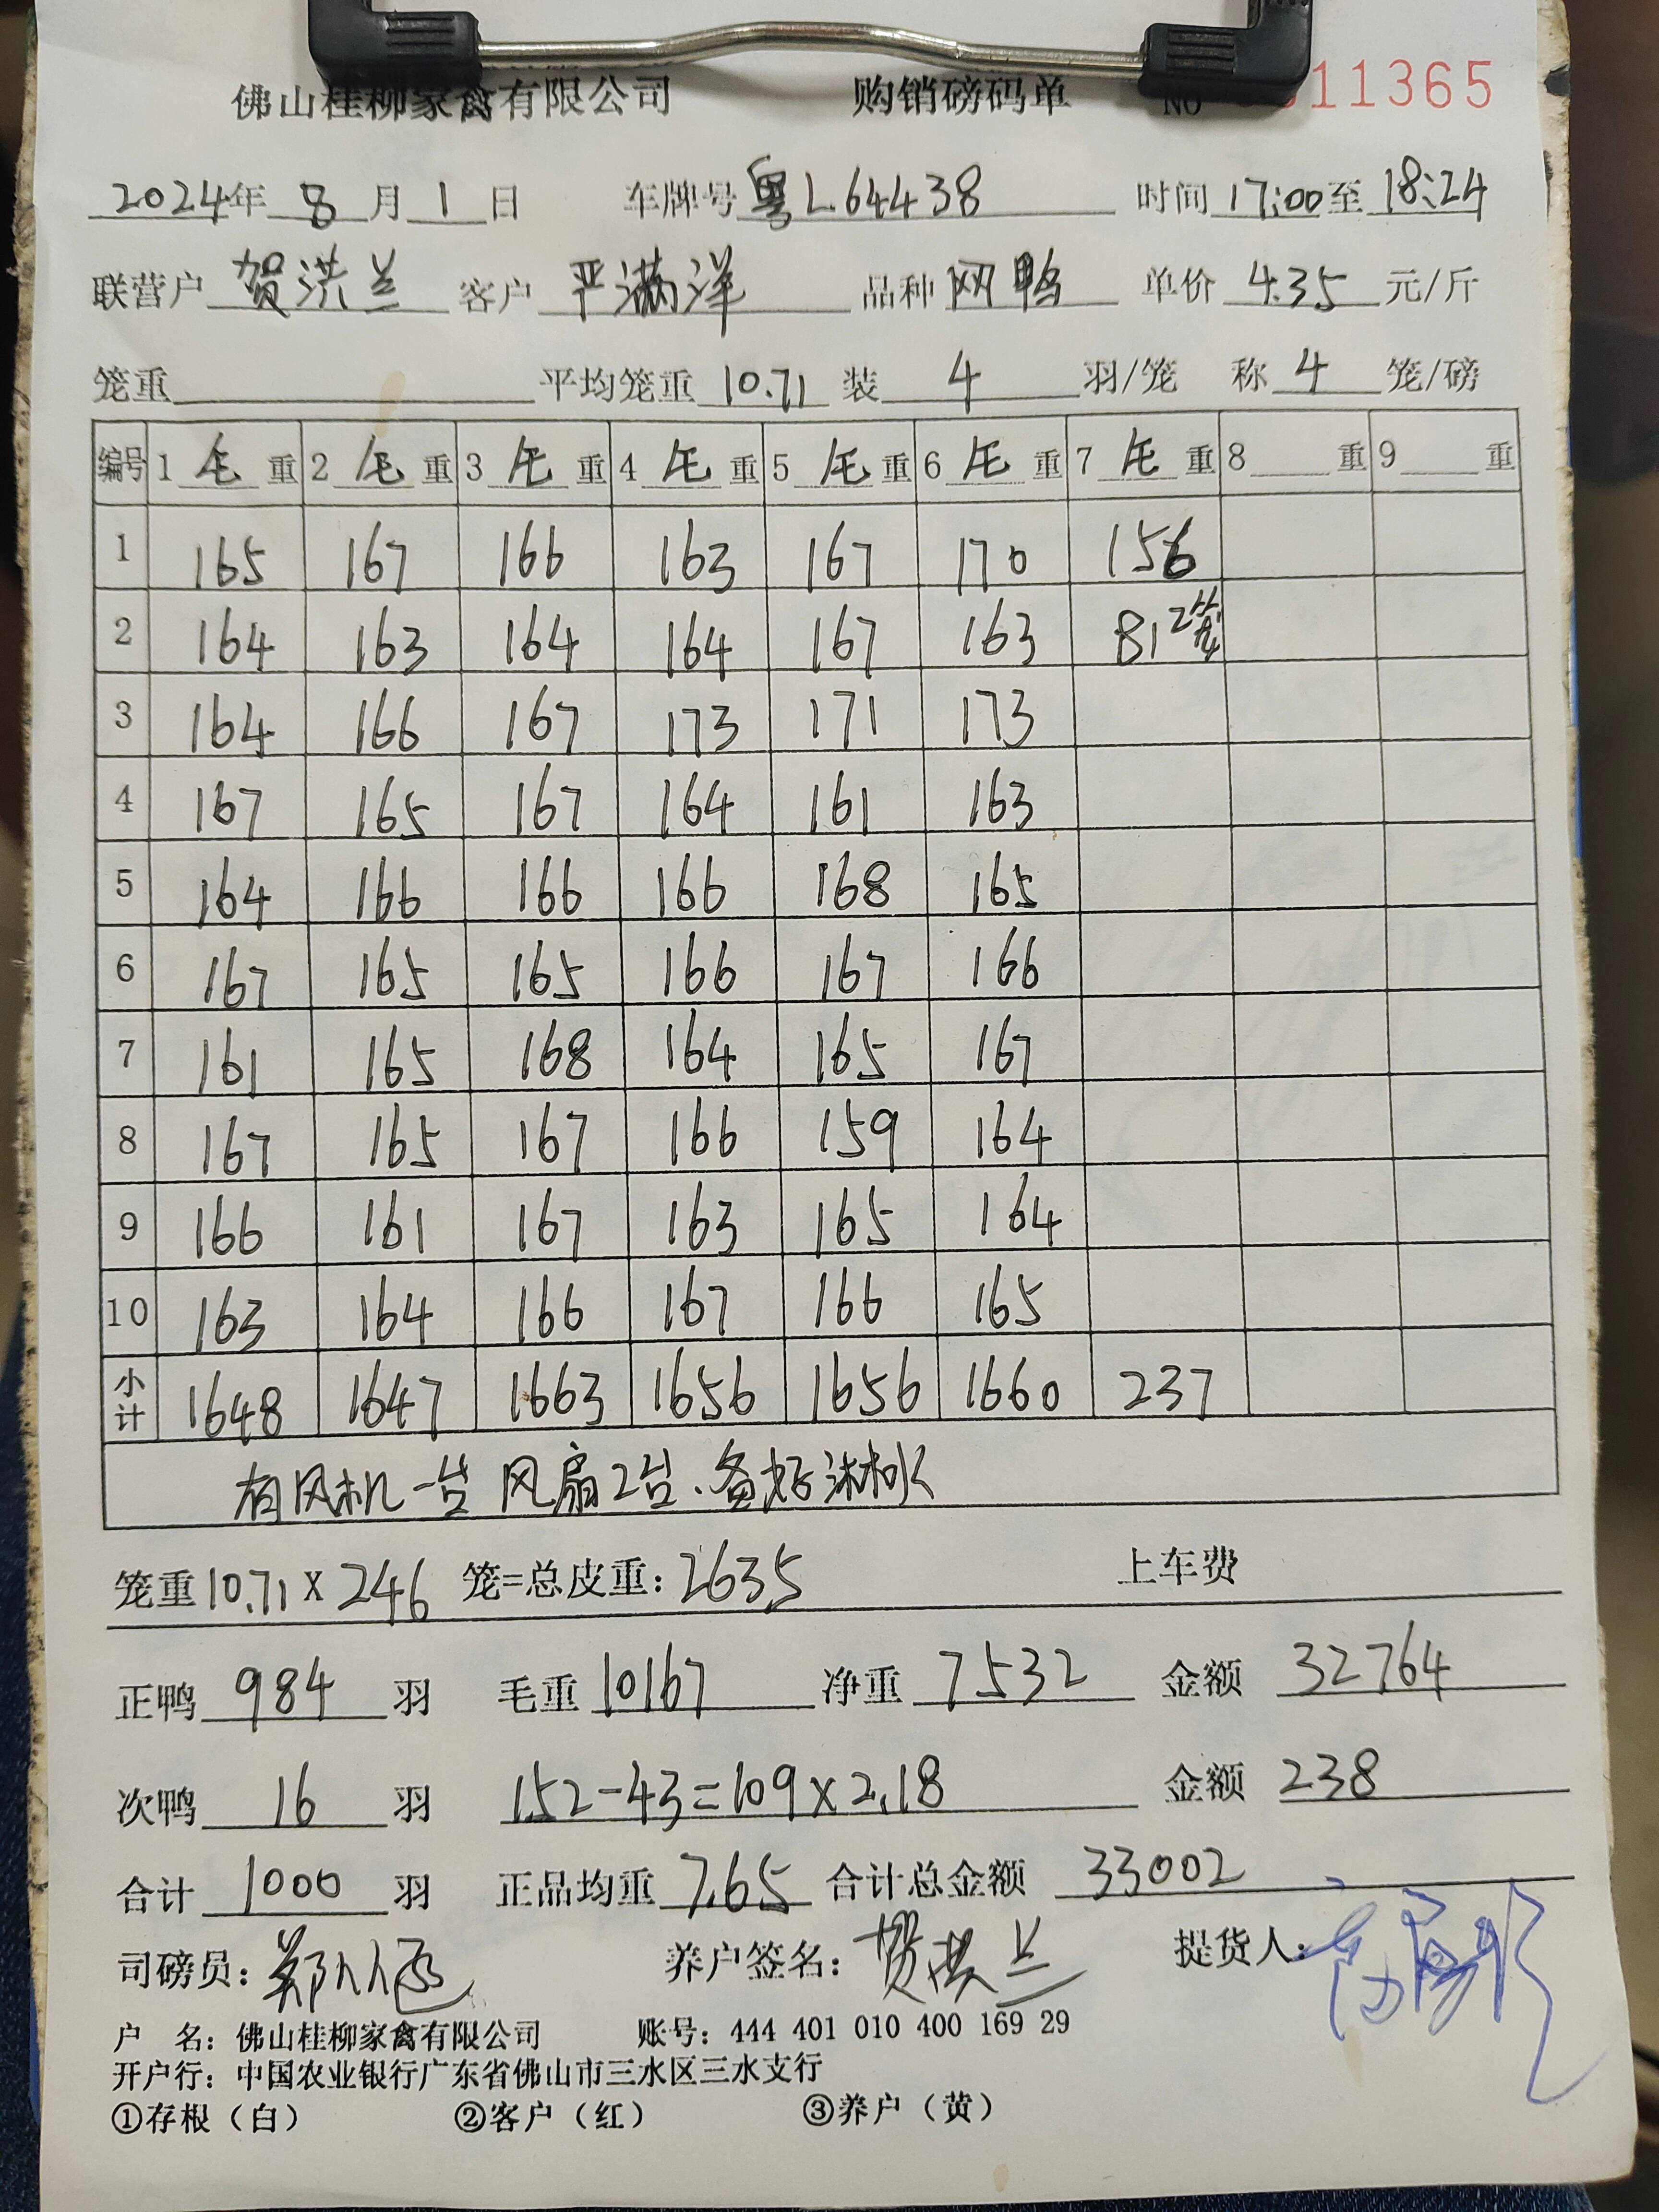 佛山桂柳家禽有限公司 购销磅码单 NO 11365
2024年 8 月 1 日 车牌号 粤L64438 时间 17:00 至 18:24
联营户 贺洪兰 客户 严满洋 品种 网鸭 单价 4.35 元/斤
笼重 平均笼重 10.71 装 4 羽/笼 称 4 笼/磅
编号 1 毛 重 2 毛 重 3 毛 重 4 毛 重 5 毛 重 6 毛 重 7 毛 重 8 重 9 重
1 165 167 166 163 167 170 156
2 164 163 164 164 167 163 81 2笼
3 164 166 167 173 171 173
4 167 165 167 164 161 163
5 164 166 166 166 168 165
6 167 165 165 166 167 166
7 161 165 168 164 165 167
8 167 165 167 166 159 164
9 166 161 167 163 165 164
10 163 164 166 167 166 165
小计 1648 1647 1663 1656 1656 1660 237
有风机一台 风扇2台、备好淋水
笼重 10.71 x 246 笼=总皮重: 2635 上车费
正鸭 984 羽 毛重 10167 净重 7532 金额 32764
次鸭 16 羽 152-43=109×2.18 金额 238
合计 1000 羽 正品均重 7.65 合计总金额 33002
司磅员: 养户签名: 贺洪兰 提货人:
户 名: 佛山桂柳家禽有限公司 账号: 444 401 010 400 169 29
开户行: 中国农业银行广东省佛山市三水区三水支行
①存根(白) ②客户(红) ③养户(黄)